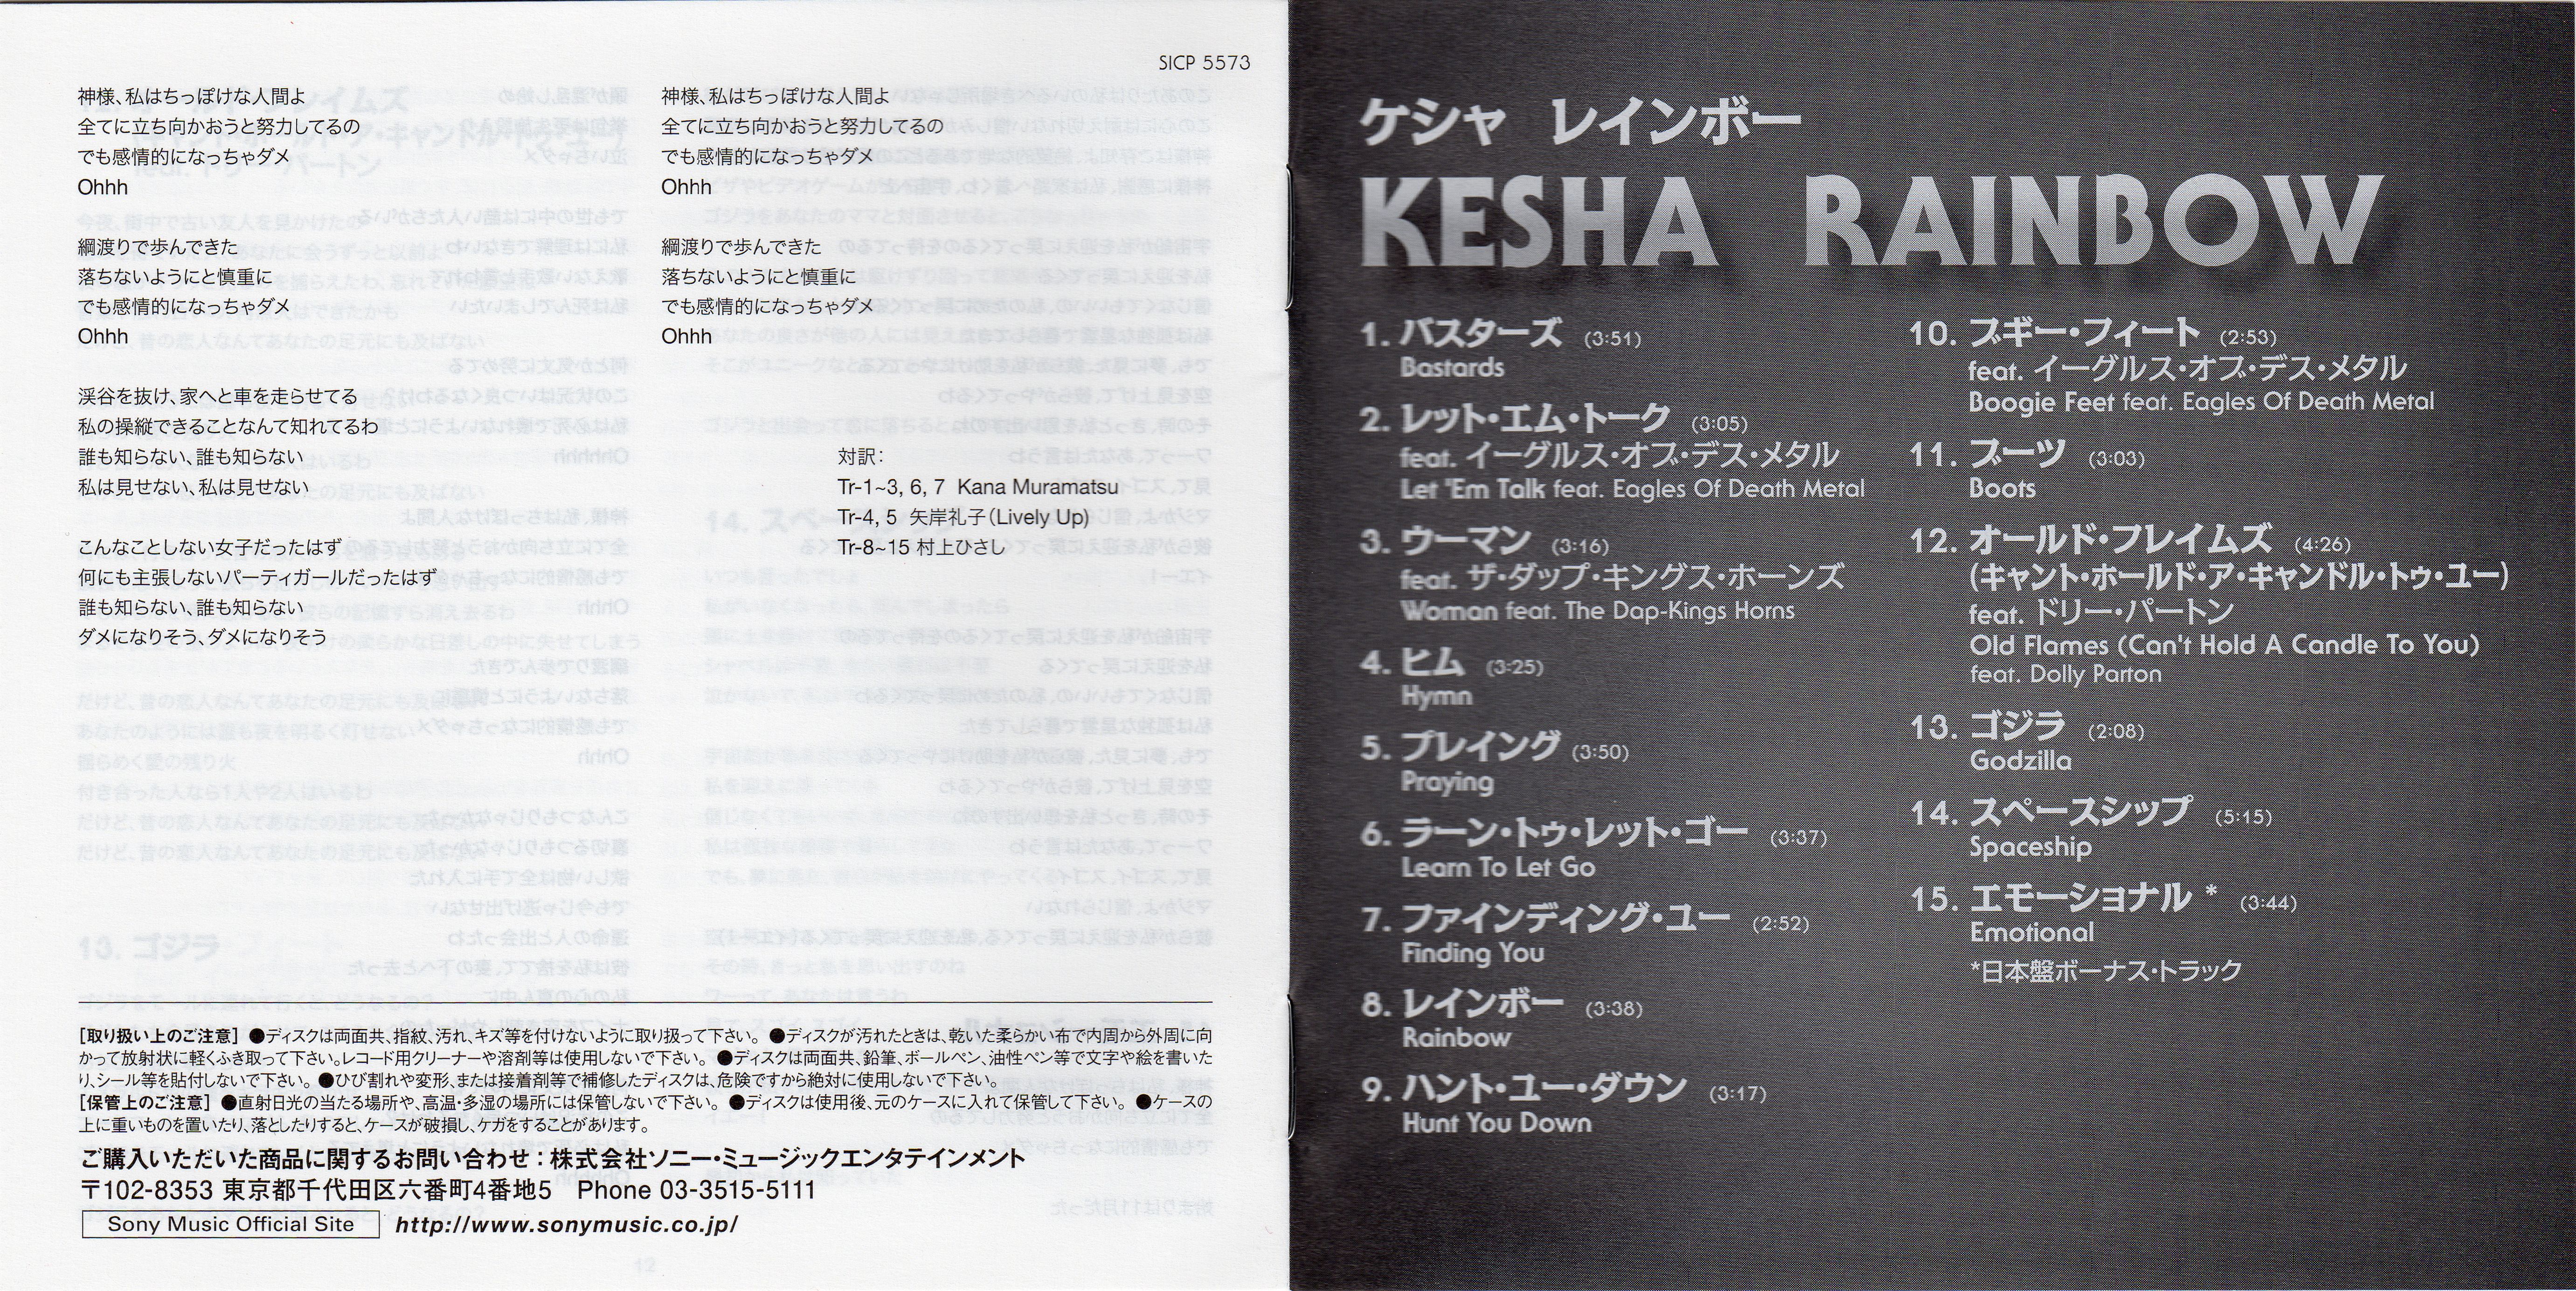 SICP 5573
神様、私はちっぽけな人間よ
全てに立ち向かおうと努力してるの
でも感情的になっちゃダメ
Ohhh
綱渡りで歩んできた
落ちないようにと慎重に
でも感情的になっちゃダメ
Ohhh
渓谷を抜け、家へと車を走らせてる
私の操縦できることなんて知れてるわ
誰も知らない、誰も知らない
私は見せない、私は見せない
こんなことしない女子だったはず
何にも主張しないパーティガールだったはず
誰も知らない、誰も知らない
ダメになりそう、ダメになりそう
神様、私はちっぽけな人間よ
全てに立ち向かおうと努力してるの
でも感情的になっちゃダメ
Ohhh
綱渡りで歩んできた
落ちないようにと慎重に
でも感情的になっちゃダメ
Ohhh
対訳：
Tr-1~3, 6, 7 Kana Muramatsu
Tr-4, 5 矢岸礼子（Lively Up）
Tr-8~15 村上ひさし
［取り扱い上のご注意］ ●ディスクは両面共、指紋、汚れ、キズ等を付けないように取り扱って下さい。 ●ディスクが汚れたときは、乾いた柔らかい布で内周から外周に向
かって放射状に軽くふき取って下さい。レコード用クリーナーや溶剤等は使用しないで下さい。 ●ディスクは両面共、鉛筆、ボールペン、油性ペン等で文字や絵を書いた
り、シール等を貼付しないで下さい。 ●ひび割れや変形、または接着剤等で補修したディスクは、危険ですから絶対に使用しないで下さい。
［保管上のご注意］ ●直射日光の当たる場所や、高温・多湿の場所には保管しないで下さい。 ●ディスクは使用後、元のケースに入れて保管して下さい。 ●ケースの
上に重いものを置いたり、落としたりすると、ケースが破損し、ケガをすることがあります。
ご購入いただいた商品に関するお問い合わせ：株式会社ソニー・ミュージックエンタテインメント
〒102-8353 東京都千代田区六番町4番地5 Phone 03-3515-5111
Sony Music Official Site http://www.sonymusic.co.jp/
ケシャ レインボー
KESHA RAINBOW
1. バスターズ (3:51)
Bastards
2. レット・エム・トーク (3:05)
feat. イーグルス・オブ・デス・メタル
Let 'Em Talk feat. Eagles Of Death Metal
3. ウーマン (3:16)
feat. ザ・ダップ・キングス・ホーンズ
Woman feat. The Dap-Kings Horns
4. ヒム (3:25)
Hymn
5. プレイング (3:50)
Praying
6. ラーン・トゥ・レット・ゴー (3:37)
Learn To Let Go
7. ファインディング・ユー (2:52)
Finding You
8. レインボー (3:38)
Rainbow
9. ハント・ユー・ダウン (3:17)
Hunt You Down
10. ブギー・フィート (2:53)
feat. イーグルス・オブ・デス・メタル
Boogie Feet feat. Eagles Of Death Metal
11. ブーツ (3:03)
Boots
12. オールド・フレイムズ (4:26)
(キャント・ホールド・ア・キャンドル・トゥ・ユー)
feat. ドリー・パートン
Old Flames (Can't Hold A Candle To You)
feat. Dolly Parton
13. ゴジラ (2:08)
Godzilla
14. スペースシップ (5:15)
Spaceship
15. エモーショナル * (3:44)
Emotional
*日本盤ボーナス・トラック